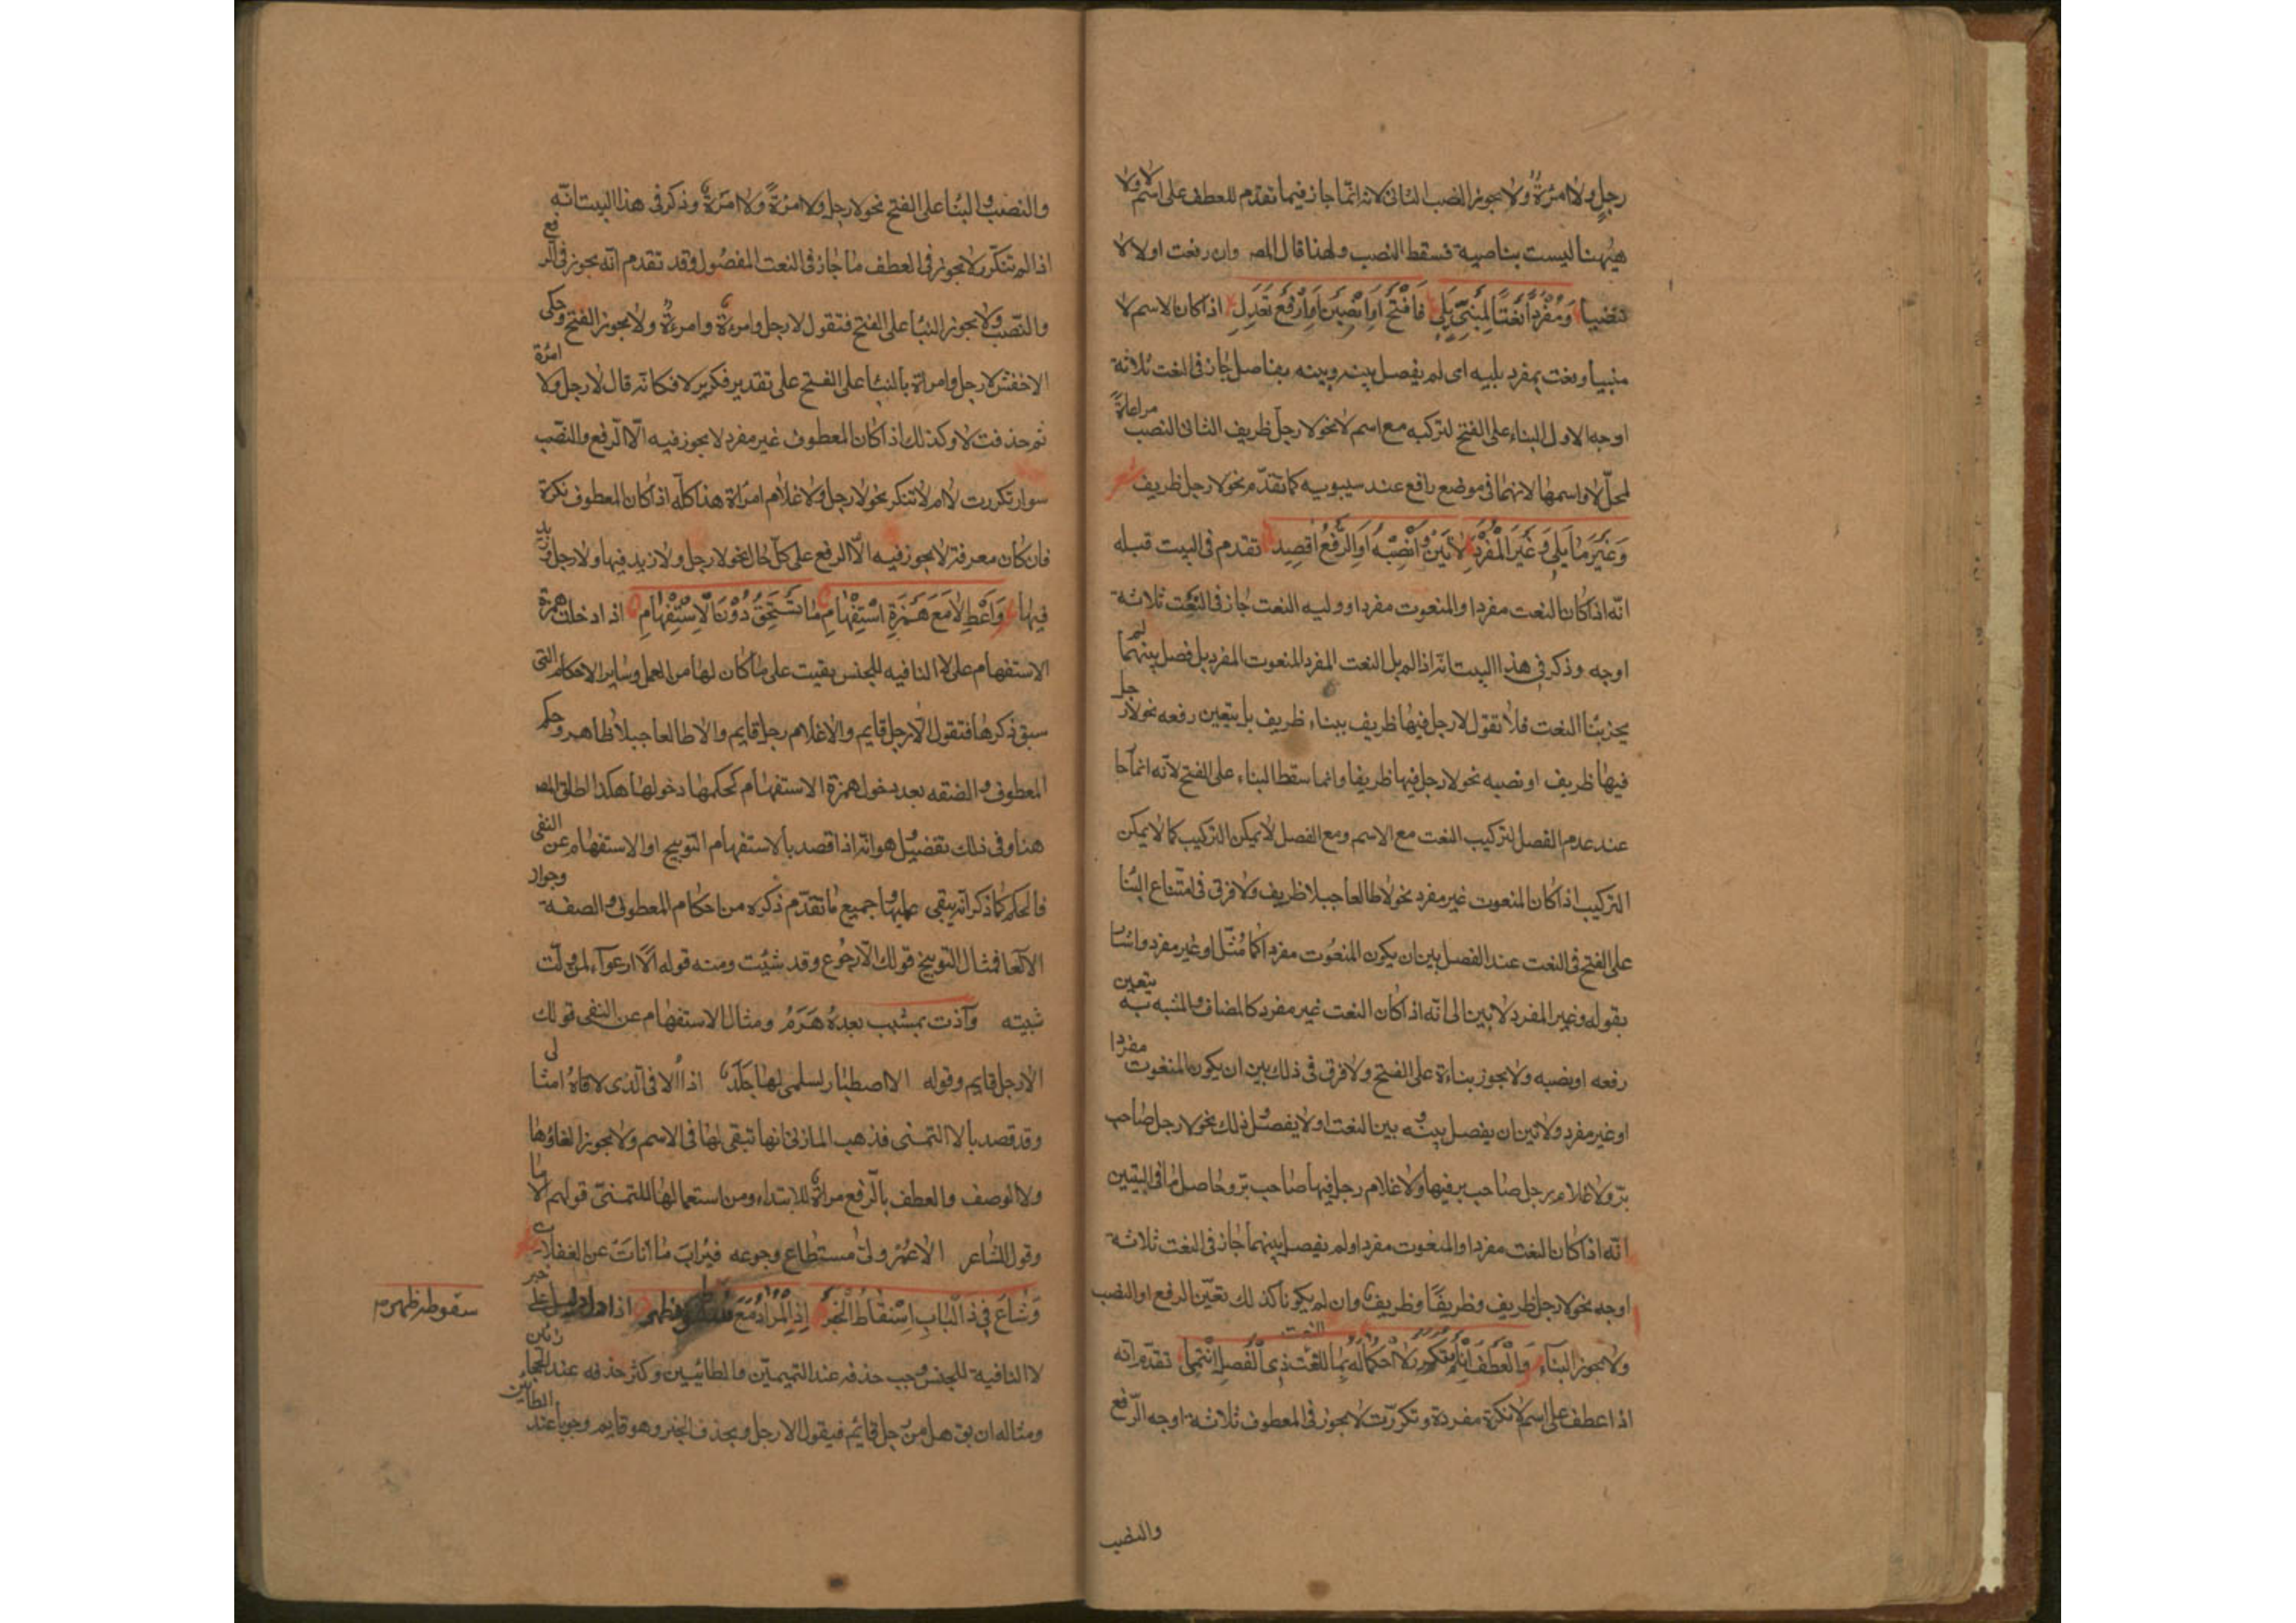 رجل ولا امرءة ولا يجوز النصب للثانى لانه انما جاز فيما تقدم للعطف على اسم لا ولا
هيهنا ليست بناصبة فسقط النصب ولهذا قال المص وان رفعت اولا لا
تنصبا وَمُفْرَدًا نَعْتًا لِمَبْنِىٍّ يَلِى فَافْتَحْ اَوِ انْصِبَنْ اَوِ ارْفَعْ تَعْدِلِ اذا كان الاسم لا
مبنيا ونعت بمفرد يليه اى لم يفصل بينه وبينه بفاصل جاز فى النعت ثلاثة
اوجه الاول البناء على الفتح لتركبه مع اسم لا نحو لا رجل ظريف الثانى النصب مراعاة
لمحل لا واسمها لانهما فى موضع رافع عند سيبويه كما تقدم نحو لا رجل ظريف
وَغَيْرَ مَا يَلِى وَغَيْرَ الْمُفْرَدِ لَا تَبْنِ وَانْصِبْهُ اَوِ الرَّفْعَ اقْصِدِ تقدم فى البيت قبله
انه اذا كان النعت مفردا والمنعوت مفردا ووليه النعت جاز فى النعت ثلاثة
اوجه وذكر فى هذا البيت انه اذا لم يل النعت المفرد المنعوت المفرد بل فصل بينهما لم
يجز بنا النعت فلا تقول لا رجل فيها ظريف ببناء ظريف بل يتعين رفعه نحو لا رجل
فيها ظريف او نصبه نحو لا رجل فيها ظريفا وانما سقط البناء على الفتح لانه انما جا
عند عدم الفصل لتركيب النعت مع الاسم ومع الفصل لا يمكن التركيب كما لا يمكن
التركيب اذا كان المنعوت غير مفرد نحو لا طالعا جبلا ظريف ولا فرق فى امتناع البنا
على الفتح فى النعت عند الفصل بين ان يكون المنعوت مفردا كما مثل او غير مفرد واشا
بقوله وغير المفرد لا تبن الى انه اذا كان النعت غير مفرد كالمضاف والمشبه به يتعين
رفعه او نصبه ولا يجوز بناءه على الفتح ولا فرق فى ذلك بين ان يكون المنعوت مفردا
او غير مفرد ولا بين ان يفصل بينه وبين النعت او لا يفصل ذلك نحو لا رجل صاحب
بر ولا غلام رجل صاحب بر فيها ولا غلام رجل فيها صاحب بر وحاصل ما فى البيتين
انه اذا كان النعت مفردا والمنعوت مفردا ولم يفصل بينهما جاز فى النعت ثلاثة
اوجه نحو لا رجل ظريف وظريفًا وظريف وان لم يكونا كذلك تعين الرفع او النصب
ولا يجوز البناء وَالْعَطْفُ اِنْ لَمْ تَتَكَرَّرْ لَا احْكُمَا لَهُ بِمَا لِلنَّعْتِ ذِى الْفَصْلِ انْتَمَى تقدم انه
اذا عطف على اسم لا نكرة مفردة وتكررت لا يجوز فى المعطوف ثلاثة اوجه الرفع
والنصب
والنصب والبنا على الفتح نحو لا رجل ولا امرءة ولا امرءة وذكر فى هذا البيت انه
اذا لم تتكرر لا يجوز فى العطف ما جاز فى النعت المفصول وقد تقدم انه يجوز فى الرفع
والنصب ولا يجوز البنا على الفتح فتقول لا رجل وامرءة وامرءة ولا يجوز الفتح وحكى
الاخفش لا رجل وامراة بالبنا على الفتح على تقدير تكرير لا فكانه قال لا رجل ولا امرءة
ثم حذفت لا وكذلك اذا كان المعطوف غير مفرد لا يجوز فيه الا الرفع والنصب
سواء تكررت لا ام لا تتكرر نحو لا رجل ولا غلام امراة هذا كله اذا كان المعطوف نكرة
فان كان معرفة لا يجوز فيه الا الرفع على كل حال نحو لا رجل ولا زيد فيها ولا رجل وزيد
فيها وَاَعْطِ لَا مَعَ هَمْزَةِ اسْتِفْهَامِ مَا تَسْتَحِقُّ دُوْنَ الْاِسْتِفْهَامِ اذا دخلت همزة
الاستفهام على لا النافيه للجنس بقيت على ما كان لها من العمل وساير الاحكام التى
سبق ذكرها فتقول الا رجل قايم والا غلام رجل قايم والا طالعا جبلا ظاهر وحكم
المعطوف والصفه بعد دخول همزة الاستفهام كحكمها دخولها هكذا اطلق المص
هنا وفى ذلك تفصيل هو انه اذا قصد بالاستفهام التوبيخ او الاستفهام عن النفى
فالحكم كما ذكر انه يبقى عليها جميع ما تقدم ذكره من احكام المعطوف والصفة وجواز
الالغا فمثال التوبيخ قولك الا رجوع وقد شبت ومنه قوله الا ارعواء لمن ولت
شبيته وآذنت بمشيب بعده هَرَمُ ومثال الاستفهام عن النفى قولك
الا رجل قايم وقوله الا اصطبار لسلمى لها جلد اذا الاقى الذى لاقاه امثالى
وقد قصد بالا التمنى فذهب المازنى انها تبقى لها فى الاسم ولا يجوز الغاؤها
ولا الوصف والعطف بالرفع مراعاة للابتداء ومن استعمالها للتمنى قولهم الا ما
وقول الشاعر الا عُمْرَ ولى مستطاع رجوعه فيراب ما اثات عن الغفلات
وَشَاعَ فِى ذَا الْبَابِ اِسْقَاطُ الْخَبَرْ اِذِ الْمُرَادُ مَعَ سقوطه ظهر اذا دل دليل على خبر
سقوطه ظهر م
لا النافية للجنس وجب حذفه عند التميميين والطائيين وكثر حذفه عند الحجازيين
ومثاله ان يق هل من رجل قائم فيقول لا رجل ويحذف الخبر وهو قايم وجوبا عند الطائيين